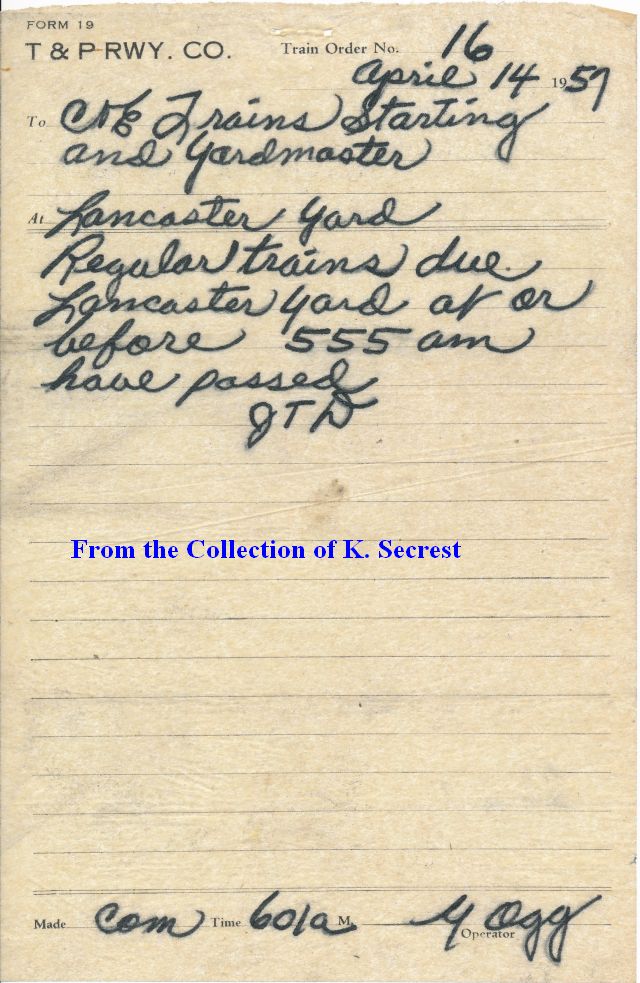 FORM 19
T & P RWY. CO. Train Order No. 16
April 14 1957
To C&E Trains Starting
and Yardmaster
At Lancaster Yard
Regular trains due
Lancaster Yard at or
before 555 am
have passed
JTD
From the Collection of K. Secrest
Made Com Time 601a M. Y Ogg
Operator